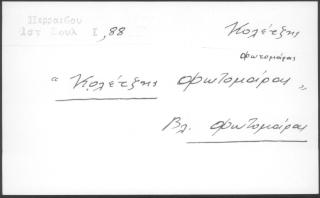 Περραιβου
Ιστ Σουλ Ι ,88
Κολέτζης
φωτομάρας
"Κολέτζης φωτομάρας"
Βλ. φωτομάρας